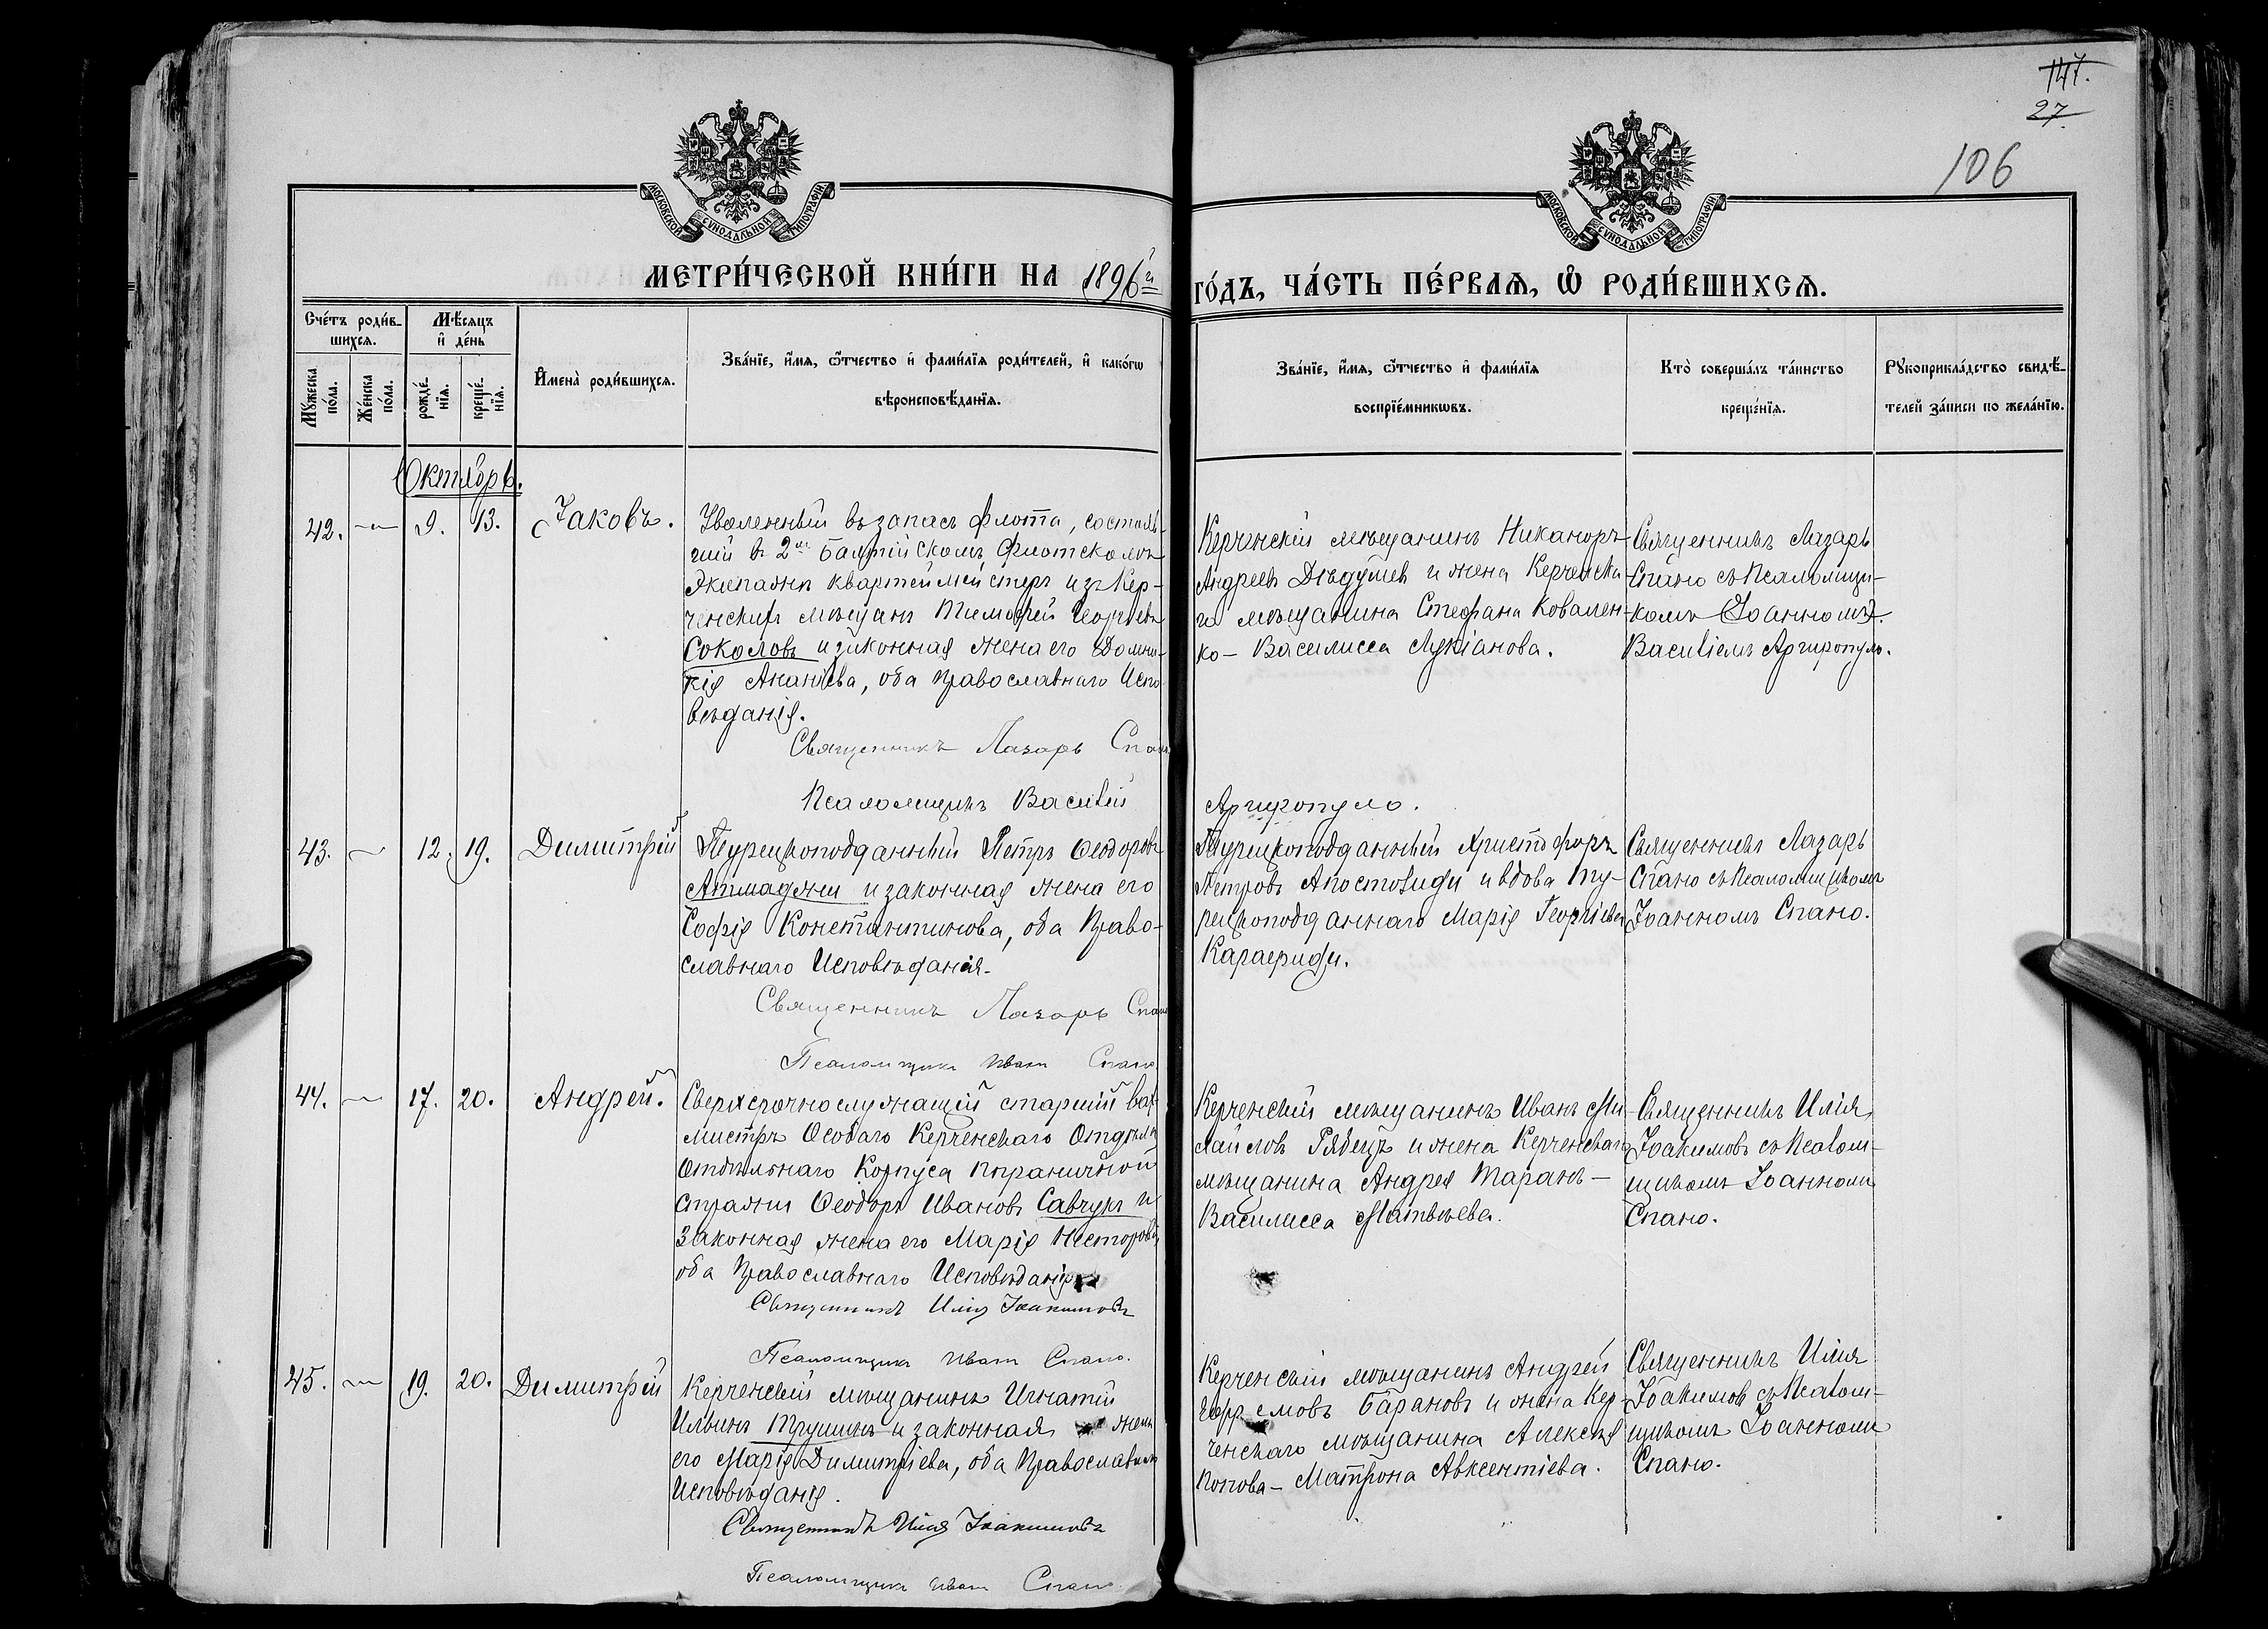 147.
27
106
МОСКОВСКОЙ СѴНОДАЛЬНОЙ ТИПОГРАФІИ
МОСКОВСКОЙ СѴНОДАЛЬНОЙ ТИПОГРАФІИ
МЕТРИ́ЧЕСКОЙ КНИ́ГИ НА 1896 й
ГО́ДЪ, ЧА́СТЬ ПЕ́РВАѦ, Ѽ РОДИ́ВШИХСѦ.
Сче́тъ роди́в-
шихсѧ.
Мѣ́сѧцъ
и҆ де́нь
Мꙋ́жеска
по́ла.
Же́нска
по́ла.
рожде́-
нїѧ.
креще́-
нїѧ.
И҆мена̀ роди́вшихсѧ.
Зва́нїе, и҆́мѧ, ѻ҆́тчество и҆ фами́лїѧ роди́телей, и҆ како́гѡ
вѣроисповѣ́данїѧ.
Зва́нїе, и҆́мѧ, ѻ҆́тчество и҆ фами́лїѧ
воспрїе́мникѡвъ.
Кто̀ соверша́лъ та́инство
креще́нїѧ.
Рꙋкоприкла́дство свидѣ́-
телей за́писи по жела́нїю.
Октябрь.
42. — 9. 13. Іаковъ.
Уволенный въ запасъ флота, состояв-
шій въ 2м Балтійскомъ Флотскомъ
Экипажѣ квартеймейстеръ изъ Кер-
ченскихъ мѣщанъ Тимофей Георгіевъ
Соколовъ и законная жена его Домни-
кія Ананіева, оба Православнаго Испо-
вѣданія.
Священникъ Лазарь Спано
Псаломщикъ Василій Аргиропуло.
Керченскій мѣщанинъ Никаноръ
Андреевъ Дѣдушевъ и жена Керченска-
го мѣщанина Стефана Ковален-
ко — Василисса Лукіанова.
Священникъ Лазарь
Спано съ Псаломщи-
комъ
Василіемъ Аргиропуло.
43. — 12. 19. Димитрій
Турецкоподданный Петръ Ѳеодоровъ
Атмаджи и законная жена его
Софія Константинова, оба Право-
славнаго Исповѣданія.
Священникъ Лазарь Спано
Псаломщикъ Иванъ Спано
Турецкоподданный Христофоръ
Петровъ Апостолиди и вдова Ту-
рецкоподданнаго Марія Георгіева
Караериди.
Священникъ Лазарь
Спано съ Псаломщикомъ
Іоанномъ Спано.
44. — 17. 20. Андрей.
Сверхсрочнослужащій старшій вах-
мистръ Особаго Керченскаго Отдѣла
Отдѣльнаго Корпуса Пограничной
Стражи Ѳеодоръ Ивановъ Савчукъ и
законная жена его Марія Несторова,
оба Православнаго Исповѣданія
Священникъ Илія Іоакимовъ
Псаломщикъ Иванъ Спано.
Керченскій мѣщанинъ Иванъ Ми-
хайловъ Рябецъ и жена Керченскаго
мѣщанина Андрея Таранъ —
Василисса Матвѣева.
Священникъ Илія
Іоакимовъ съ Псалом-
щикомъ Іоанномъ
Спано.
45. — 19. 20. Димитрій
Керченскій мѣщанинъ Игнатій
Ильинъ Трушинъ и законная жена
его Марія Димитріева, оба Православнаго
Исповѣданія.
Священникъ Илія Іоакимовъ
Псаломщикъ Иванъ Спано.
Керченскій мѣщанинъ Андрей
Барановъ и жена Кер-
ченскаго мѣщанина Алексѣя
Попова — Матрона Авксентіева.
Священникъ Илія
Іоакимовъ съ Псалом-
щикомъ Іоанномъ
Спано.